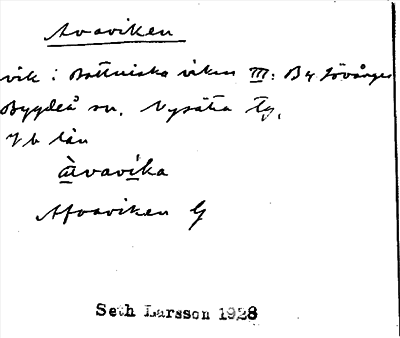 Avaviken
vik i Bottniska viken III: By Lövånger
Bygdeå sn. Nysätra tg.
Vb län
àvavíka
Afvaviken G
Seth Larsson 1928